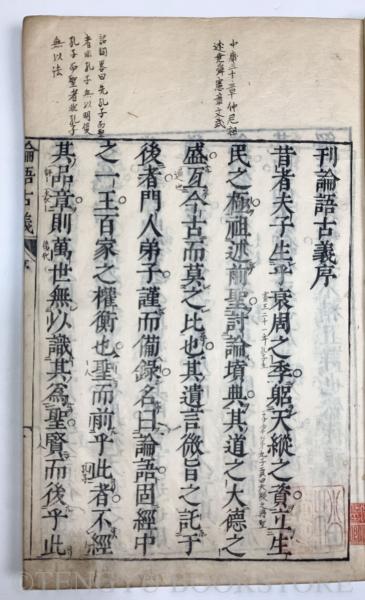 中庸三十章仲尼祖
述堯舜憲章文武
曰先孔子而聖
者非孔子無以明後
孔子而聖者非孔子
無以法
刊論語古義序
昔者夫子生乎衰周之季躬天縱之資立生
民之極祖述前聖討論墳典其道之大德之
盛亙今古而莫之比也其遺言微旨之託于
後者門人弟子謹而備錄名曰論語固經中
之一王百家之權衡也聖而前乎此者不經
其品章則萬世無以識其爲聖賢而後乎此
論語古義 序
©TENGYU BOOKSTORE